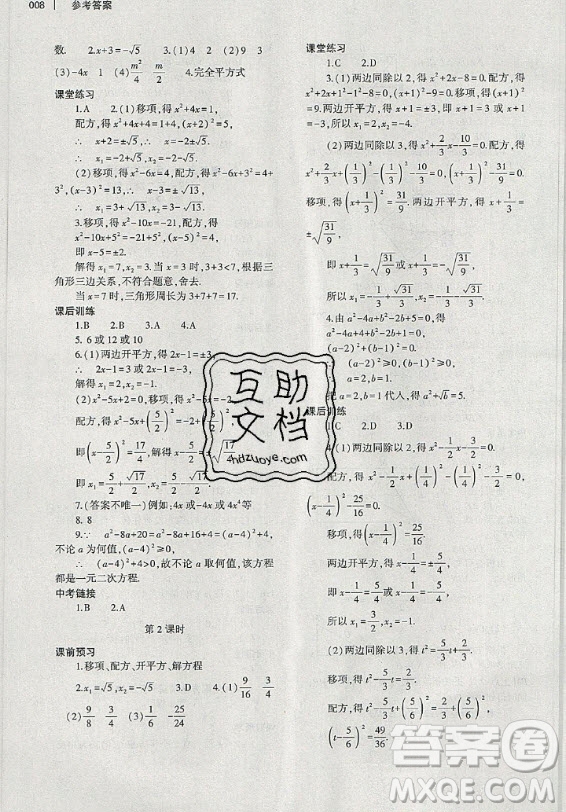 008 参考答案
数. 2.x+3=-√5 3.(1)4 2 (2)
(3)-4x 1 (4)m²/4 m/2 4.完全平方式
课堂练习
1.A 2.(1)移项,得 x²+4x=1,
配方,得 x²+4x+4=1+4,(x+2)²=5,
∴ x+2=±√5,
∴ x₁=-2+√5,x₂=-2-√5.
(2)移项,得 x²-6x=4,配方,得 x²-6x+9=4+
9,(x-3)²=13,∴ x-3=±√13,
∴ x₁=3+√13,x₂=3-√13.
3.移项,得 x²-10x=-21,配方,得
x²-10x+5²=-21+5²,(x-5)²=4,
即 x-5=±2.
解得 x₁=7,x₂=3. 当 x=3 时,3+3<7,根据三
角形三边关系,不符合题意,舍去.
当 x=7 时,三角形周长为 3+7+7=17.
课后训练
1.B 2.A 3.A 4.A
5. 6 或 12 或 10
6.(1)两边开平方,得 2x-1=±3,
即 2x-1=3 或 2x-1=
解得
(2)移项,得 x²-5x=
配方,得 x²-5x+(5/2)²=
即(x-5/2)²=17/4,即 x-5/2=±√17
即 x₁=5/2+√17/2,x₂=5/2-√17/2.
7.(答案不唯一)例如:4x 或-4x 或 4x⁴等
8. 8
9.∵ a²-8a+20=a²-8a+16+4=(a-4)²+4,
不论 a 为何值,(a-4)²≥0,
∴ (a-4)²+4>0,故不论 a 取何值,该方程
都是一元二次方程.
中考链接
1.B 2.A
第 2 课时
课前预习
1.移项、配方、开平方、解方程
2.x₁=√5,x₂=-√5 3.D 4.(1)9/16 3/4
(2)9/8 3/4 -25/24
课堂练习
1.C 2.D
3.(1)两边同除以 2,得 x²+2x-8=0. 配方,得
x²+2x+1²-1²-8=0,(x+1)²-9=0. 移项,得(x+1)²
=9.两边开平方,得 x+1=±3,即 x+1=3 或 x+1=
(2)两边同除以 3,得 x²+2/3x-10/3=0,配方,得
x²+2/3x+(1/3)²-(1/3)²-10/3=0,(x+1/3)²-31/9=
0. 移项,得(x+1/3)²=31/9. 两边开平方,得 x+1/3=
±√31/9,
即 x+1/3=√31/9或 x+1/3=-√31/9,
所以 x₁=-1/3+
4.由 a²-4a+b²+2b+5=0,得
a²-4a+4+b²+2b+1=0.
(a-2)²+(b+1)²=0.
∵ (a-2)²≥0,(b+1)²≥0,
把 a=2,b= 代入,得 a²+√b=5.
课后训练
1.C 2.D 3.D
4.(1)两边同除以 2,得 x²-1/2x-3/2=0.
配方,得 x²-1/2x+(1/4)²-(1/4)²-3/2=0,
(x-1/4)²-25/16=0.
移项,得(x-1/4)²=25/16.
两边开平方,得 x-1/4=±5/4,
即 x-1/4=5/4或 x-1/4=-5/4.
所以 x₁=3/2,x₂=-1.
(2)两边同除以 3,得 t²-5/3t=2/3.
配方,得 t²-5/3t+(5/6)²=2/3+(5/6)²,
(t-5/6)²=49/36.
互助
文档
4hdzuoye.com
答案卷
MXQE.COM